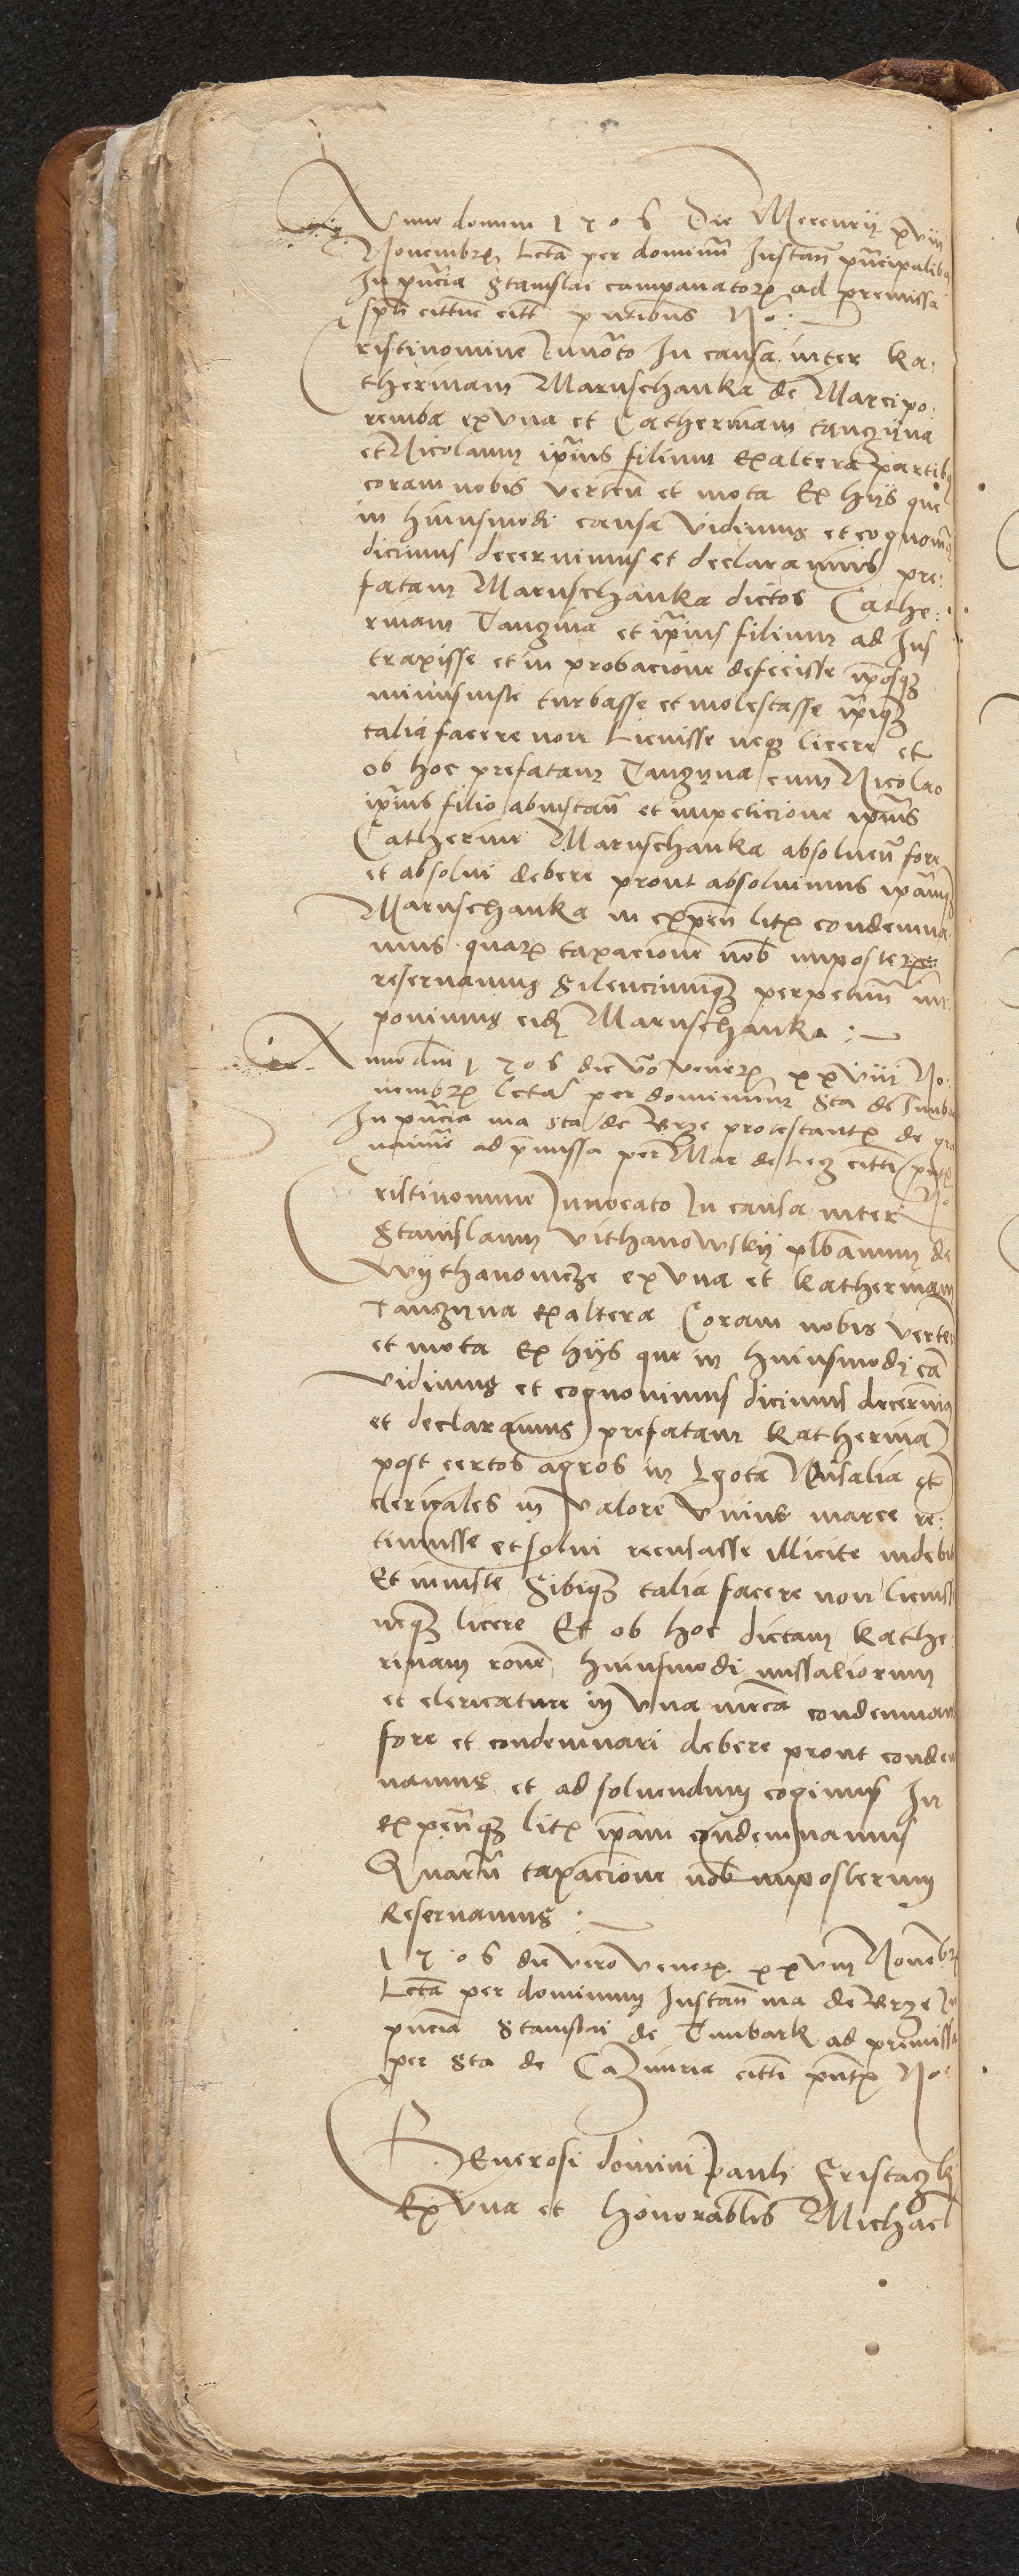 Anno domini 1506 Die Mercurij xviii
Novembr Lecta per dominum Instan principalibus
In pncia Stanislai campanatoris ad premissa
citt pntibus No:
Cristi nomine Invocato In causa inter Ka:
therinam Maruschanka de Marcipo:
remba ex una et Catherinam tangzyna
et Nicolaum ipsius filium ex altera partibus
coram nobis verten et mota Ex hijs que
in huiusmodi causa vidimus et cognovimus
dicimus decernimus et declaramus pre:
fatam Maruschanka dictos Cathe:
rinam Tangzina et ipsius filium ad Ius
traxisse et in probacione defecisse ipsosque
minus iuste turbasse et molestasse
talia facere non Licuisse neque licere et
ob hoc prefatam Tangzyna cum Nicolao
ipsius filio ab instan et impeticione ipsius
Catherine Maruschanka absolven fore
et absolvi debere prout absolvimus ipsamque
Maruschanka in expen litis condemna
mus quarum taxacionem nob imposterum
reservamus Silenciumque perpetuum im
ponimus eidem Maruschanka :
Anno dni 1506 die vero veneris xxviii No:
vembris lecta per dominum Sta de Timbar
In pncia ma Sta de Brze protestantis de gra
vamine ad premissa per Mar de citti pntis
No
Cristi nomine Invocato In causa inter
Stanislaum vithanowskij plbanum de
Wythanowicze ex una et Katherinam
Tangzyna ex altera Coram nobis verten
et mota Ex hijs que in huiusmodi ca
vidimus et cognovimus dicimus decernimus
et declaramus prefatam Katherinam
post certos agros in Lgota Missalia et
clericales in valore unius marce re:
tinuisse et solvi recusasse illicite indebite
Et iniuste Sibique talia facere non licuisse
neque licere Et ob hoc dictam Kathe
rinam racione huiusmodi missaliorum
et clericature in una marca condemnan
fore et condemnari debere prout condem
namus et ad solvendum cogimus In
expenque litis ipsam condemnamus
Quarum taxacionem nob imposterum
Reservamus :
1506 die vero veneris xxviii Novembr
Lecta per dominum Instan ma de Brze In
pncia Stanislai de Timbark ad premissa
per Sta de Cazimria citti pntis No
Generosi domini Pauli Fristaczkij
Ex una et honorabilis Michael